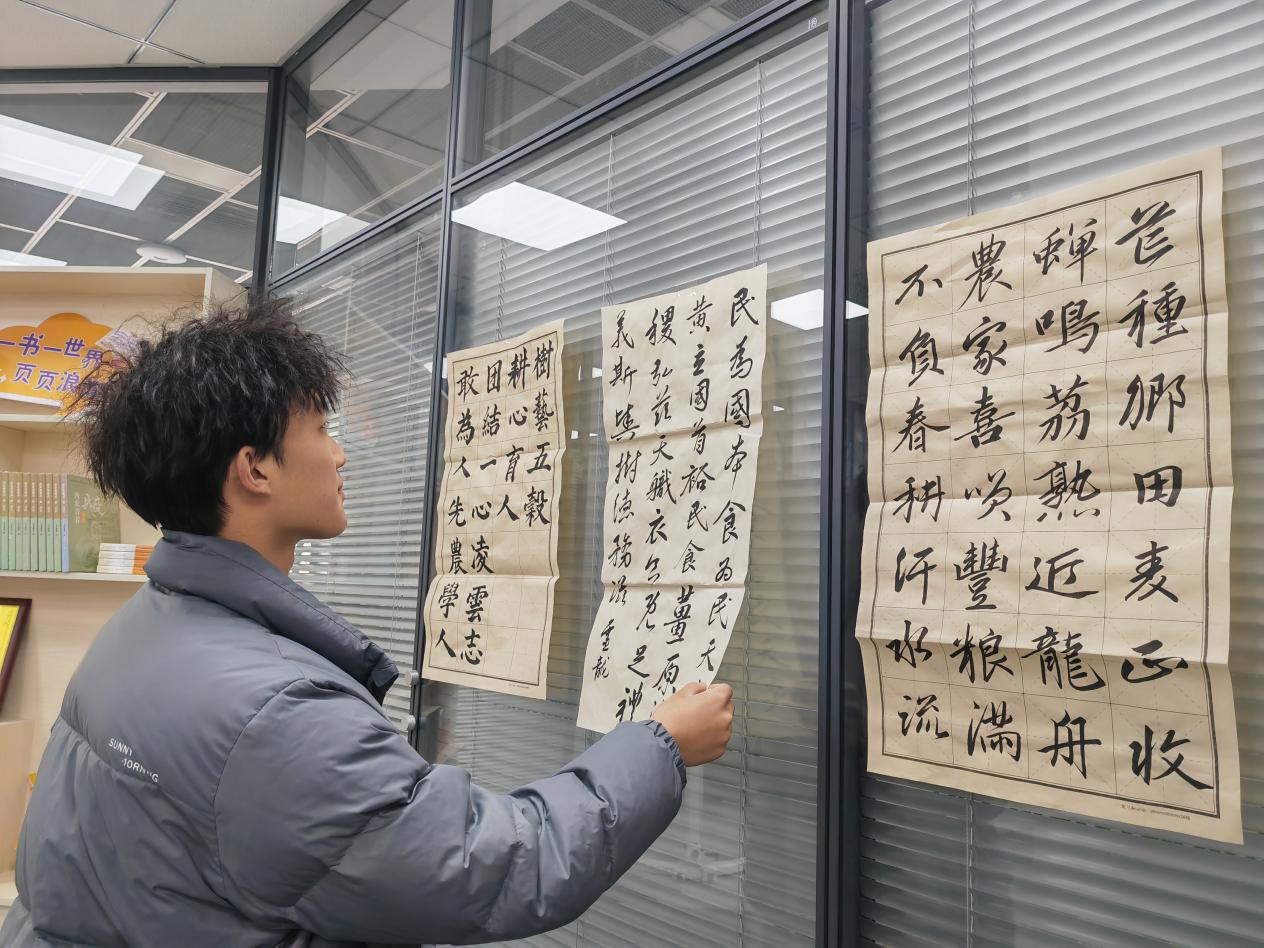 一书一世界
页页浪
樹藝五穀
耕心育人
团結一心凌雲志
敢為人先農學人
民為國本食为民天
黄立國首裕民食薑原
稷弘兹天職衣食既足
義斯興樹德務滋
芒種鄉田麦正收
蟬鳴荔熟近龍舟
農家喜唤豐粮满
不負春耕汗水流
SUNNY
MORNING